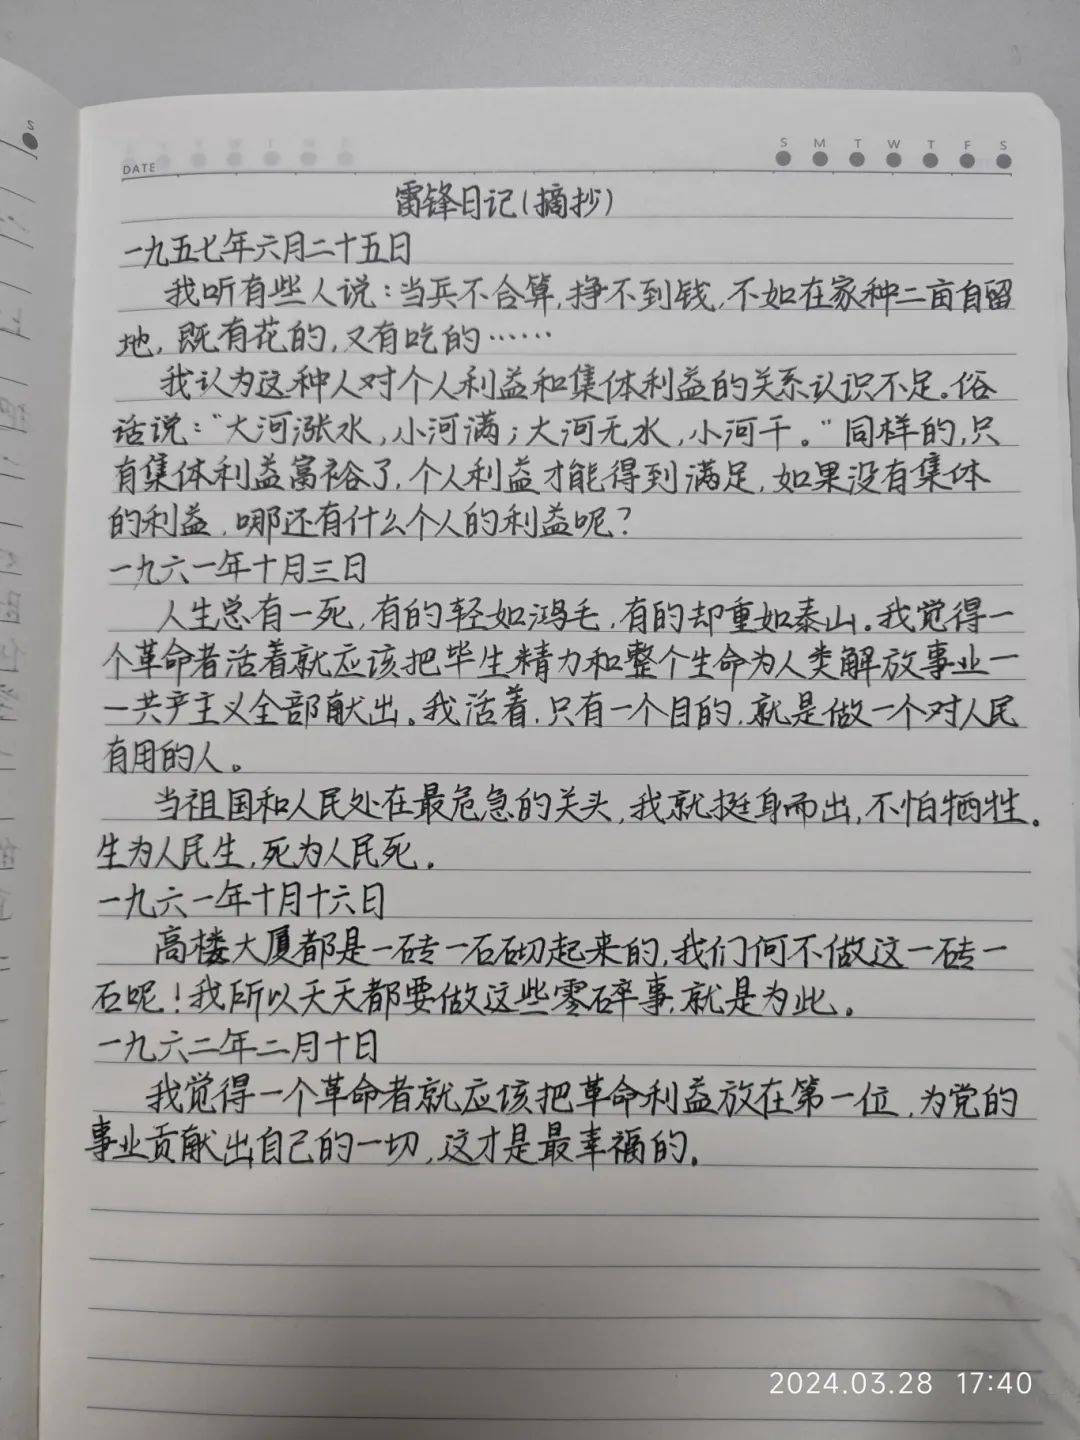 DATE
S M T W T F S
雷锋日记(摘抄)
一九五七年六月二十五日
我听有些人说:当兵不合算,挣不到钱,不如在家种二亩自留
地,既有花的,又有吃的……
我认为这种人对个人利益和集体利益的关系认识不足。俗
话说:“大河涨水,小河满;大河无水,小河干。”同样的,只
有集体利益富裕了,个人利益才能得到满足,如果没有集体
的利益,哪还有什么个人的利益呢?
一九六一年十月三日
人生总有一死,有的轻如鸿毛,有的却重如泰山。我觉得一
个革命者活着就应该把毕生精力和整个生命为人类解放事业一
一共产主义全部献出。我活着,只有一个目的,就是做一个对人民
有用的人。
当祖国和人民处在最危急的关头,我就挺身而出,不怕牺牲。
生为人民生,死为人民死。
一九六一年十月十六日
高楼大厦都是一砖一石砌起来的,我们何不做这一砖一
石呢!我所以天天都要做这些零碎事,就是为此。
一九六二年二月十日
我觉得一个革命者就应该把革命利益放在第一位,为党的
事业贡献出自己的一切,这才是最幸福的。
2024.03.28 17:40